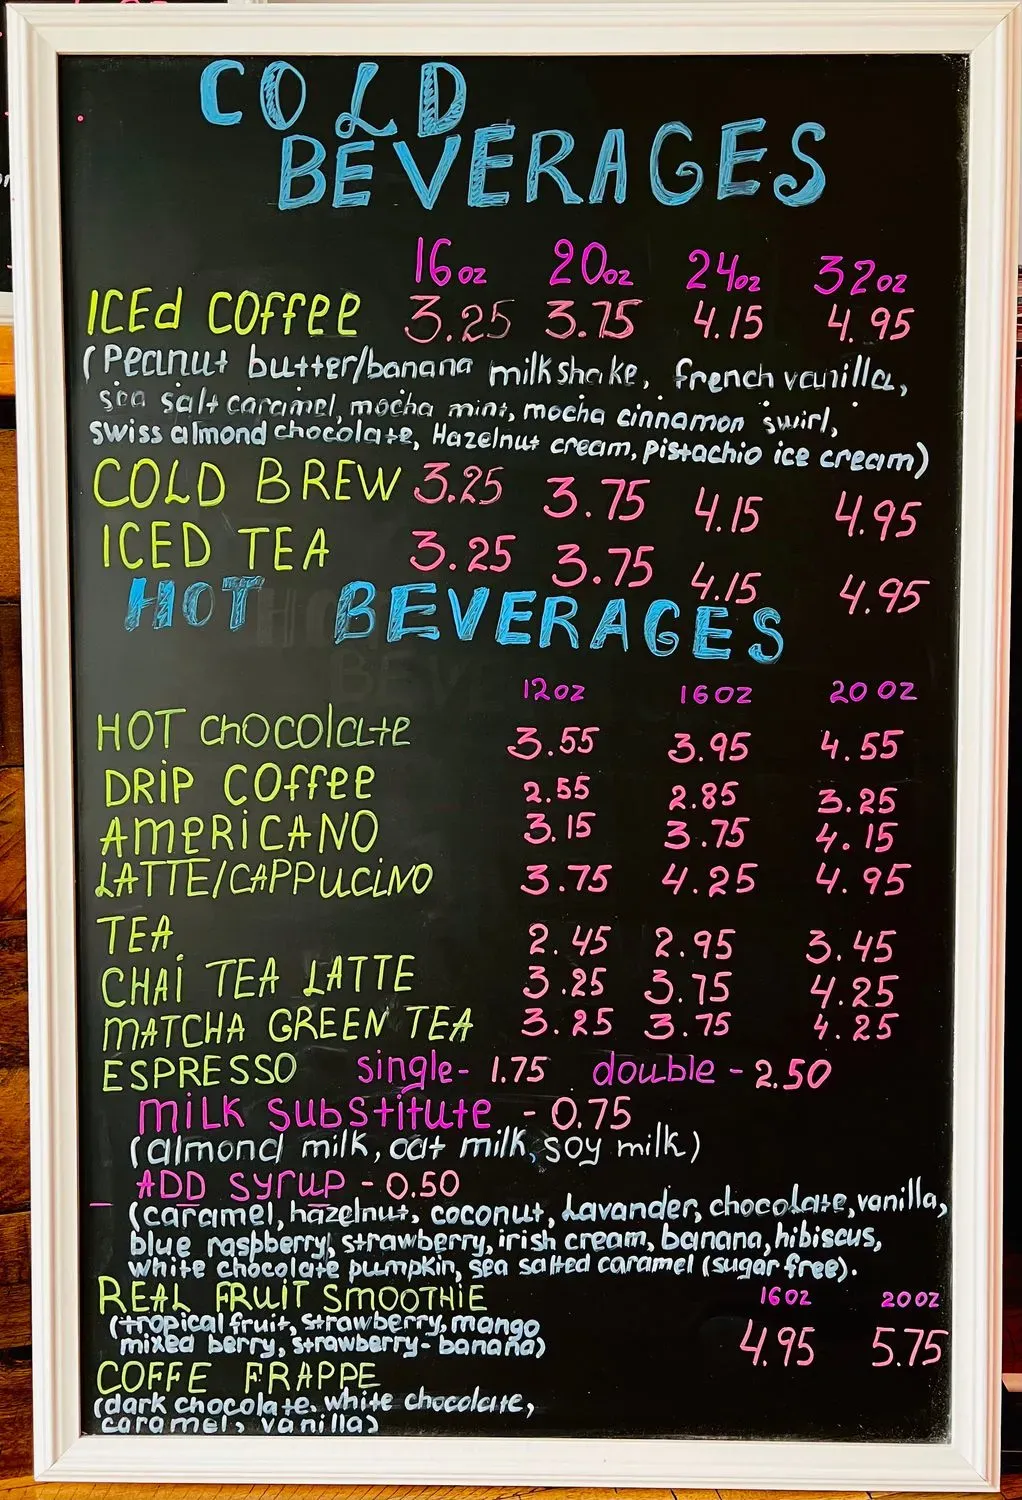 COLD
BEVERAGES
16oz 20oz 24oz 32oz
ICEd COffEE 3.25 3.75 4.15 4.95
(Peanut butter/banana milkshake, french vanilla,
sea salt caramel, mocha mint, mocha cinnamon swirl,
swiss almond chocolate, Hazelnut cream, pistachio ice cream)
COLD BREW 3.25 3.75 4.15 4.95
ICED TEA 3.25 3.75 4.15 4.95
HOT BEVERAGES
12oz 16oz 20oz
HOT chocolate 3.55 3.95 4.55
DRIP COffee 2.55 2.85 3.25
AMERICANO 3.15 3.75 4.15
LATTE/CAPPUCINO 3.75 4.25 4.95
TEA 2.45 2.95 3.45
CHAI TEA LATTE 3.25 3.75 4.25
MATCHA GREEN TEA 3.25 3.75 4.25
ESPRESSO single- 1.75 double - 2.50
MILK Substitute - 0.75
(almond milk, oat milk, soy milk)
ADD syrup - 0.50
(caramel, hazelnut, coconut, Lavander, chocolate, vanilla,
blue raspberry, strawberry, irish cream, banana, hibiscus,
white chocolate pumpkin, sea salted caramel (sugar free).
REAL FRUIT SMOOTHIE 16oz 20oz
(tropical fruit, strawberry, mango
mixed berry, strawberry-banana) 4.95 5.75
COFFE FRAPPE
(dark chocolate, white chocolate,
caramel, vanilla)